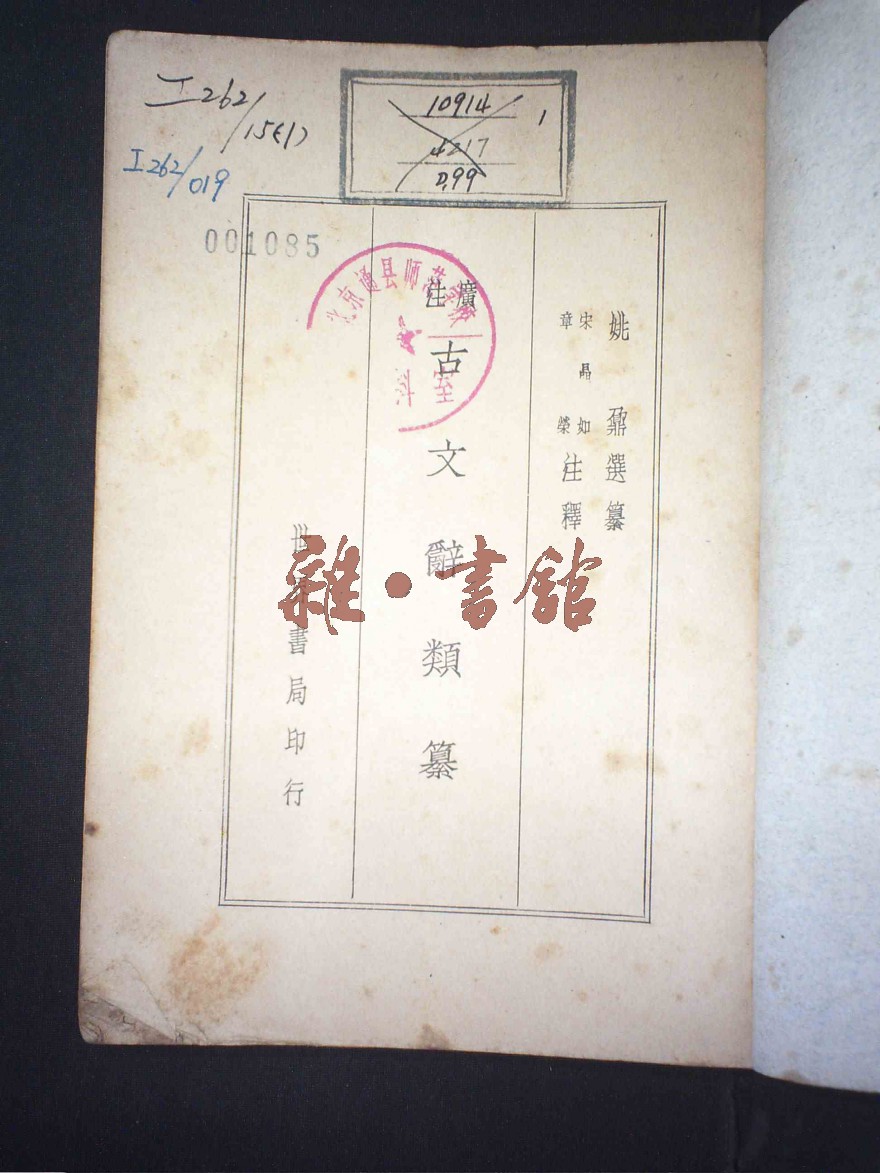 I262/15(1)
I262/019
10914
1
4217
D.99
001085
姚鼐選纂
宋晶如
章榮
注釋
廣注
古文辭類纂
世界書局印行
北京通县师范学校
雜·書館